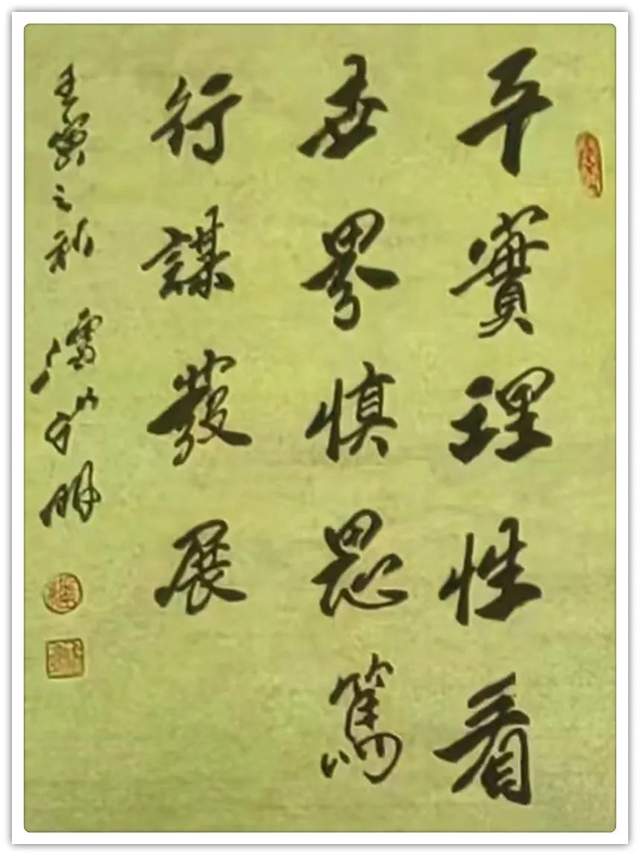 平實理性看
世界慎思篤
行謀發展
壬寅之秋